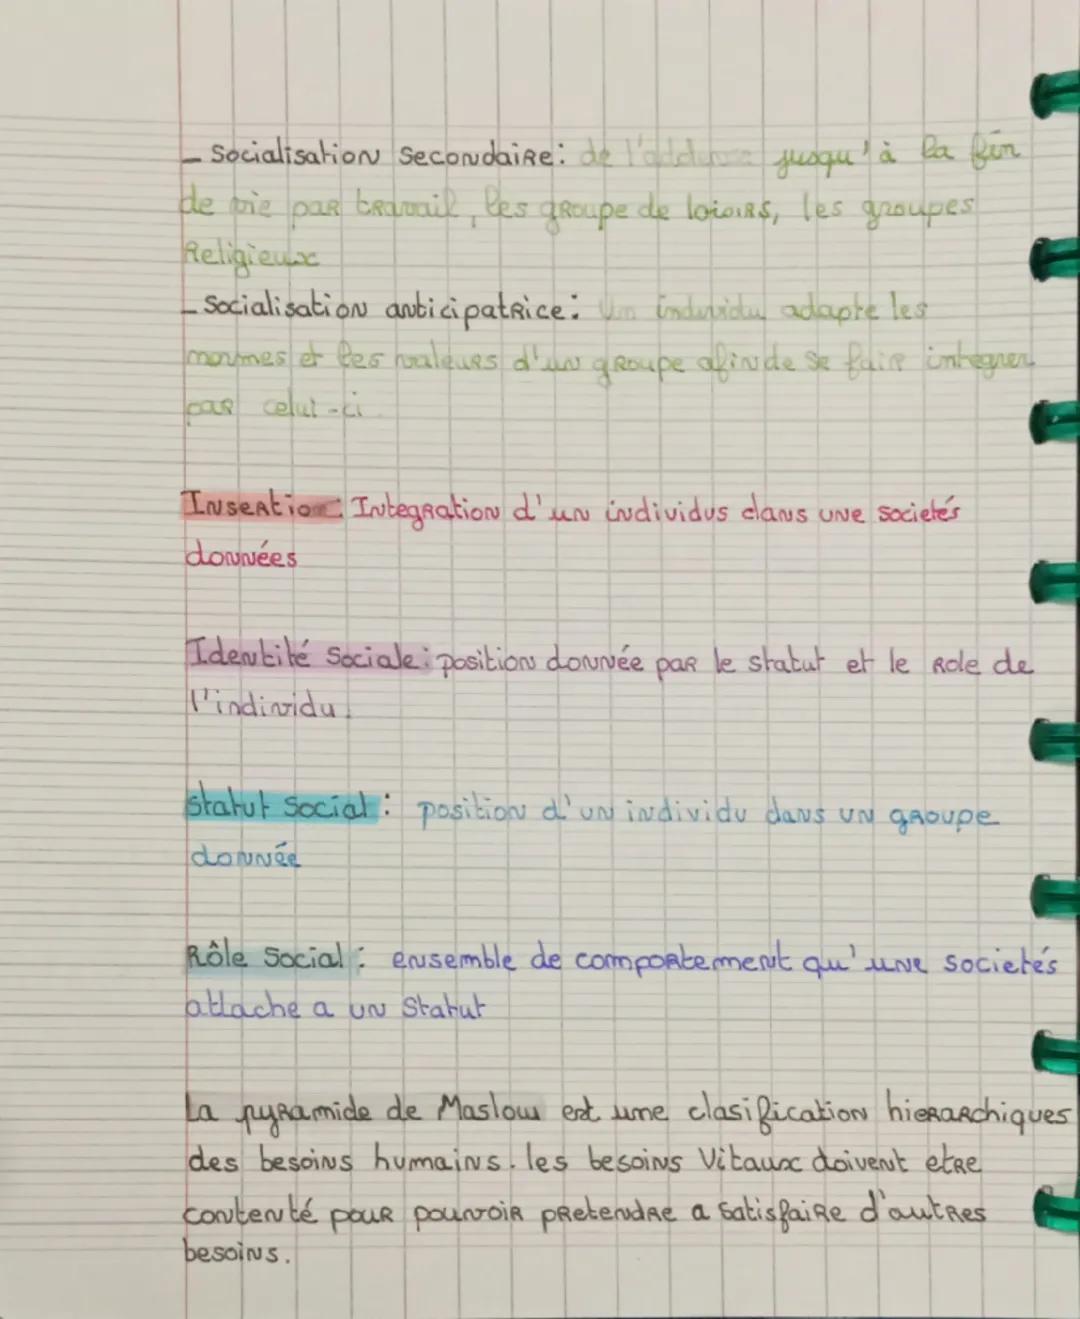 - Socialisation Secondaire: de jusqu'à la fin
de vie par travail, les groupe de loisirs, les groupes
Religieux
- Socialisation anticipatrice: Un individu adapte les
normes et les valeurs d'un groupe afin de se faire integrer
par celui-ci
Insertion: Integration d'un individus dans une societés
données
Identité Sociale: position donnée par le statut et le Role de
l'individu.
statut Social: position d'un individu dans un groupe
donnée
Rôle Social: ensemble de comportement qu'une societés
attache a un Statut
La pyramide de Maslow est une clasification hierarchiques
des besoins humains. les besoins Vitaux doivent etre
contenté pour pouvoir pretendre a satisfaire d'autres
besoins.